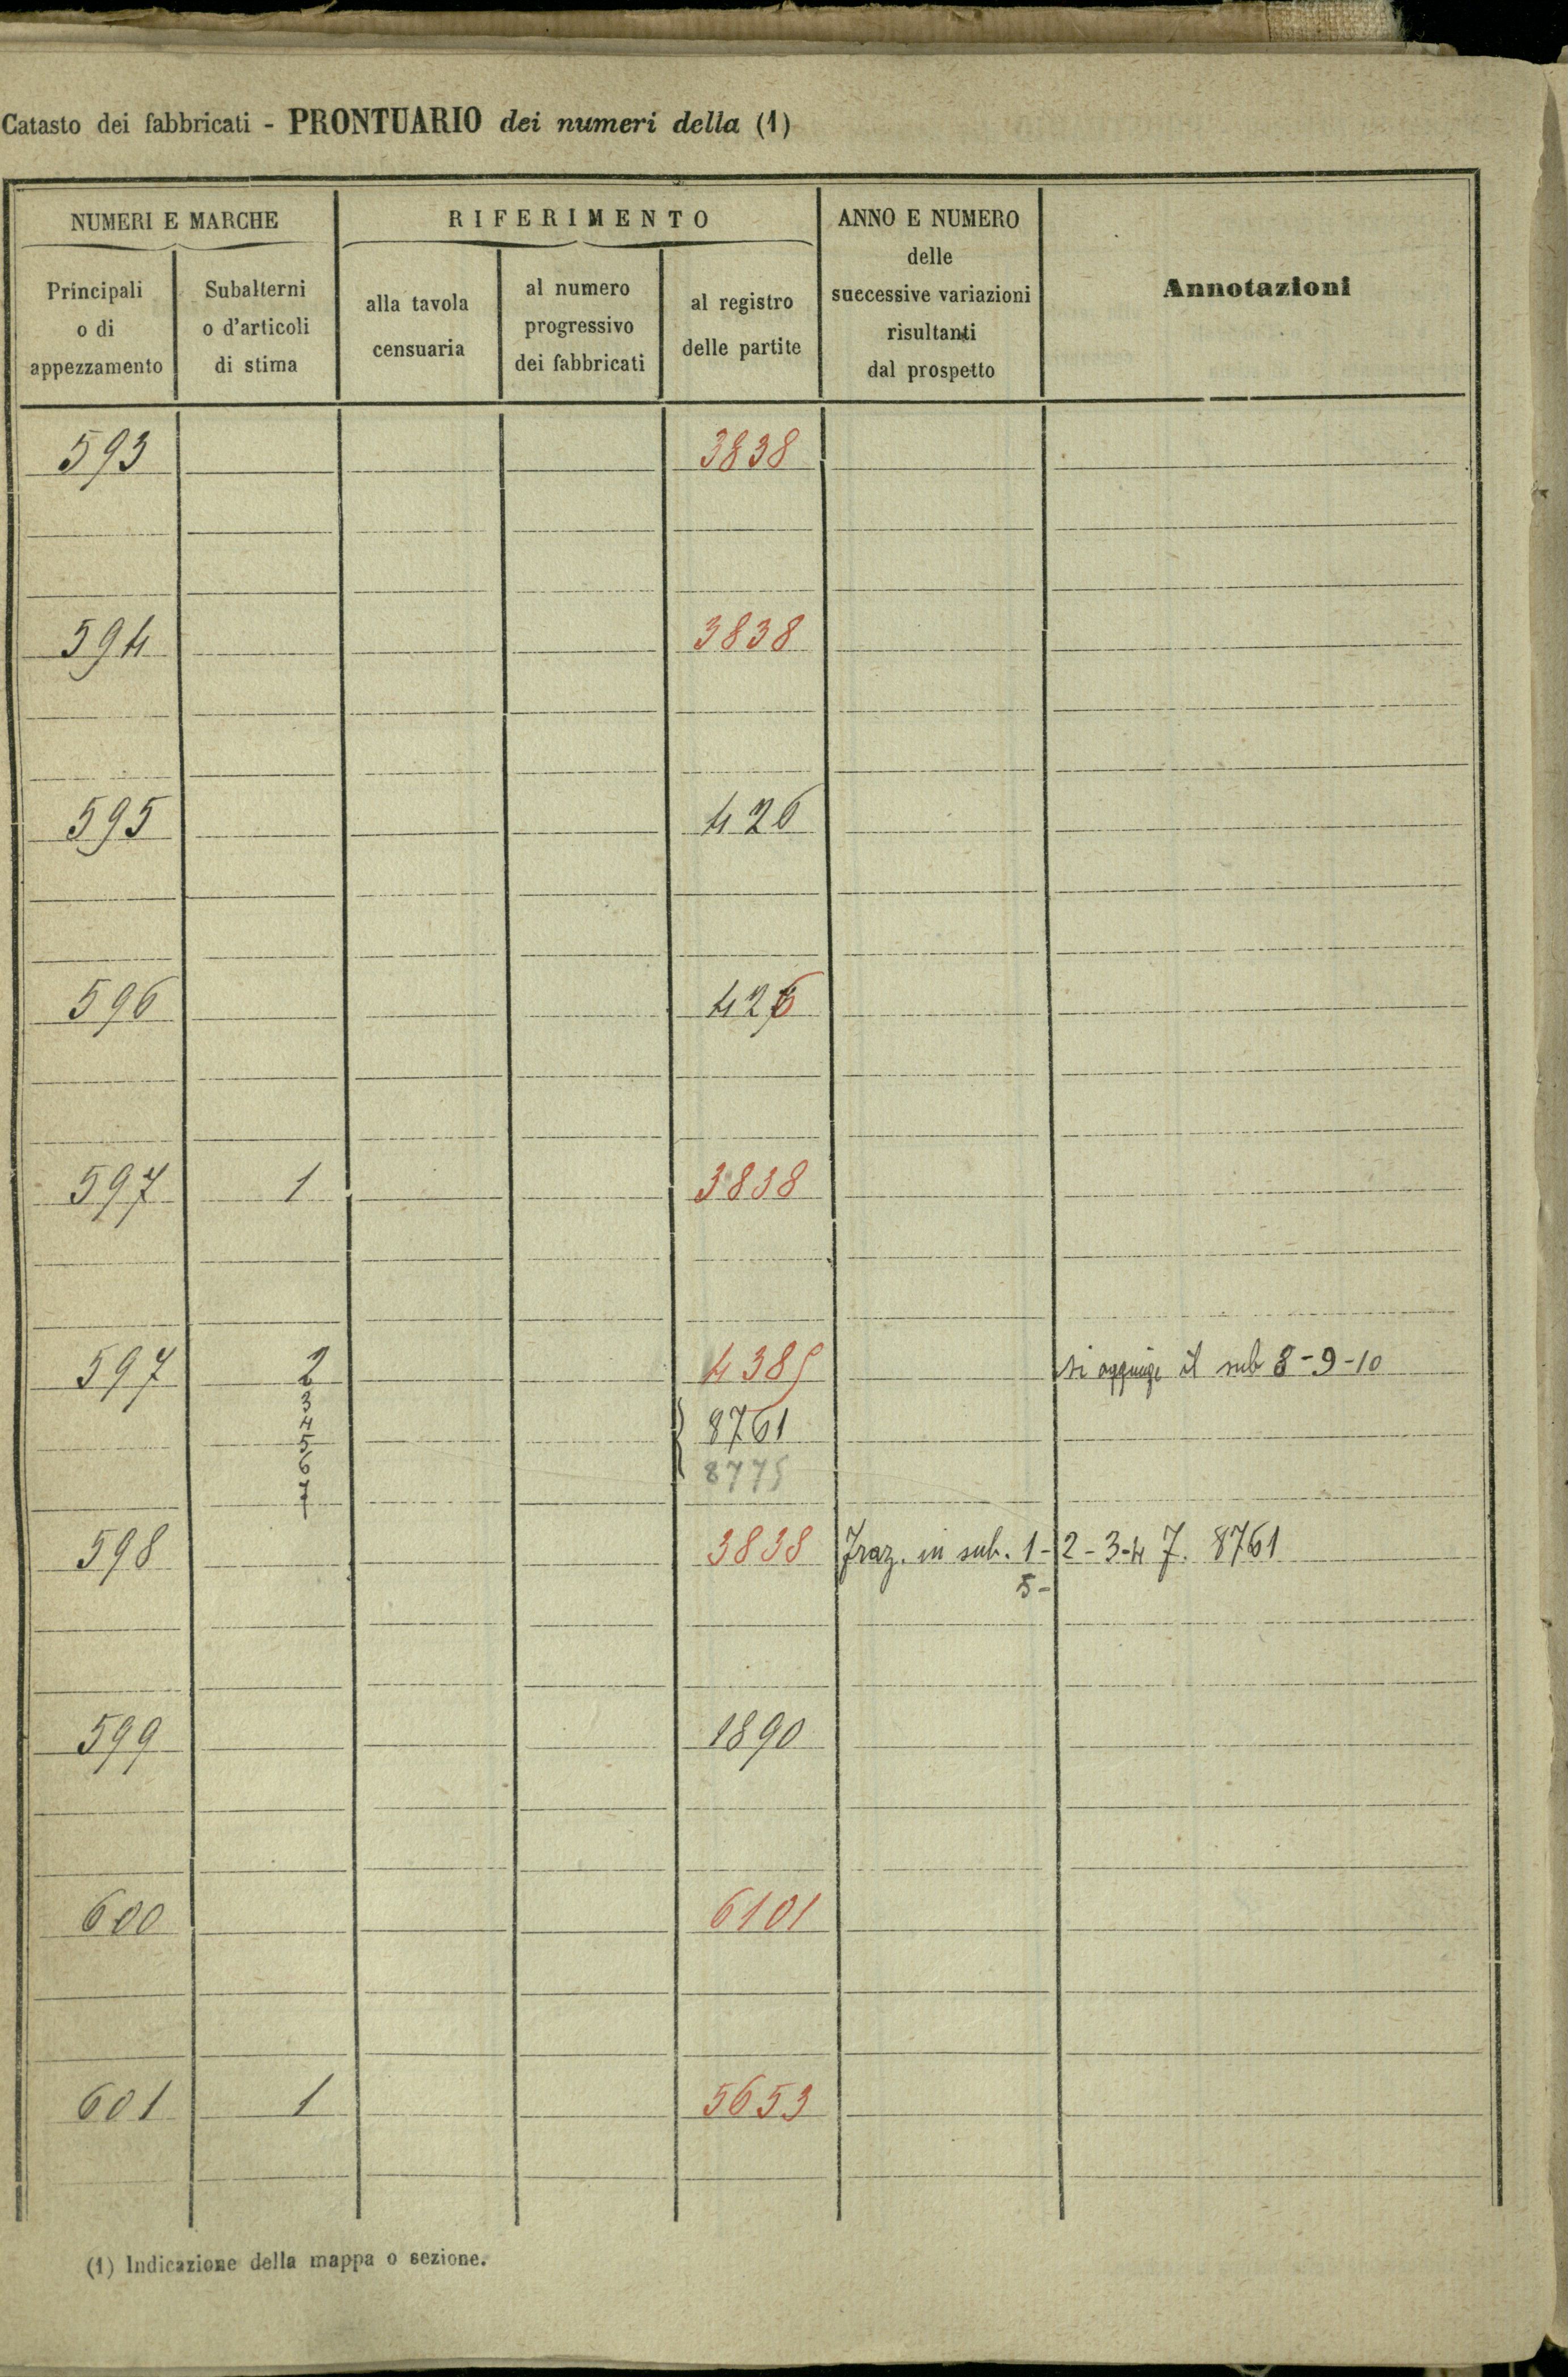 Catasto dei fabbricati - PRONTUARIO dei numeri della (1)
NUMERI E MARCHE
RIFERIMENTO
ANNO E NUMERO
delle
successive variazioni
risultanti
dal prospetto
Annotazioni
Principali
o di
appezzamento
Subalterni
o d'articoli
di stima
alla tavola
censuaria
al numero
progressivo
dei fabbricati
al registro
delle partite
593 3838
594 3838
595 426
596 426
597 1 3838
597 2 4385 si aggiunge il sub 8-9-10
3
4 8761
5
6 8775
7
598 3838 Fraz. in sub. 1-2-3-4 7. 8761
5-
599 1890
600 6101
601 1 5653
(1) Indicazione della mappa o sezione.